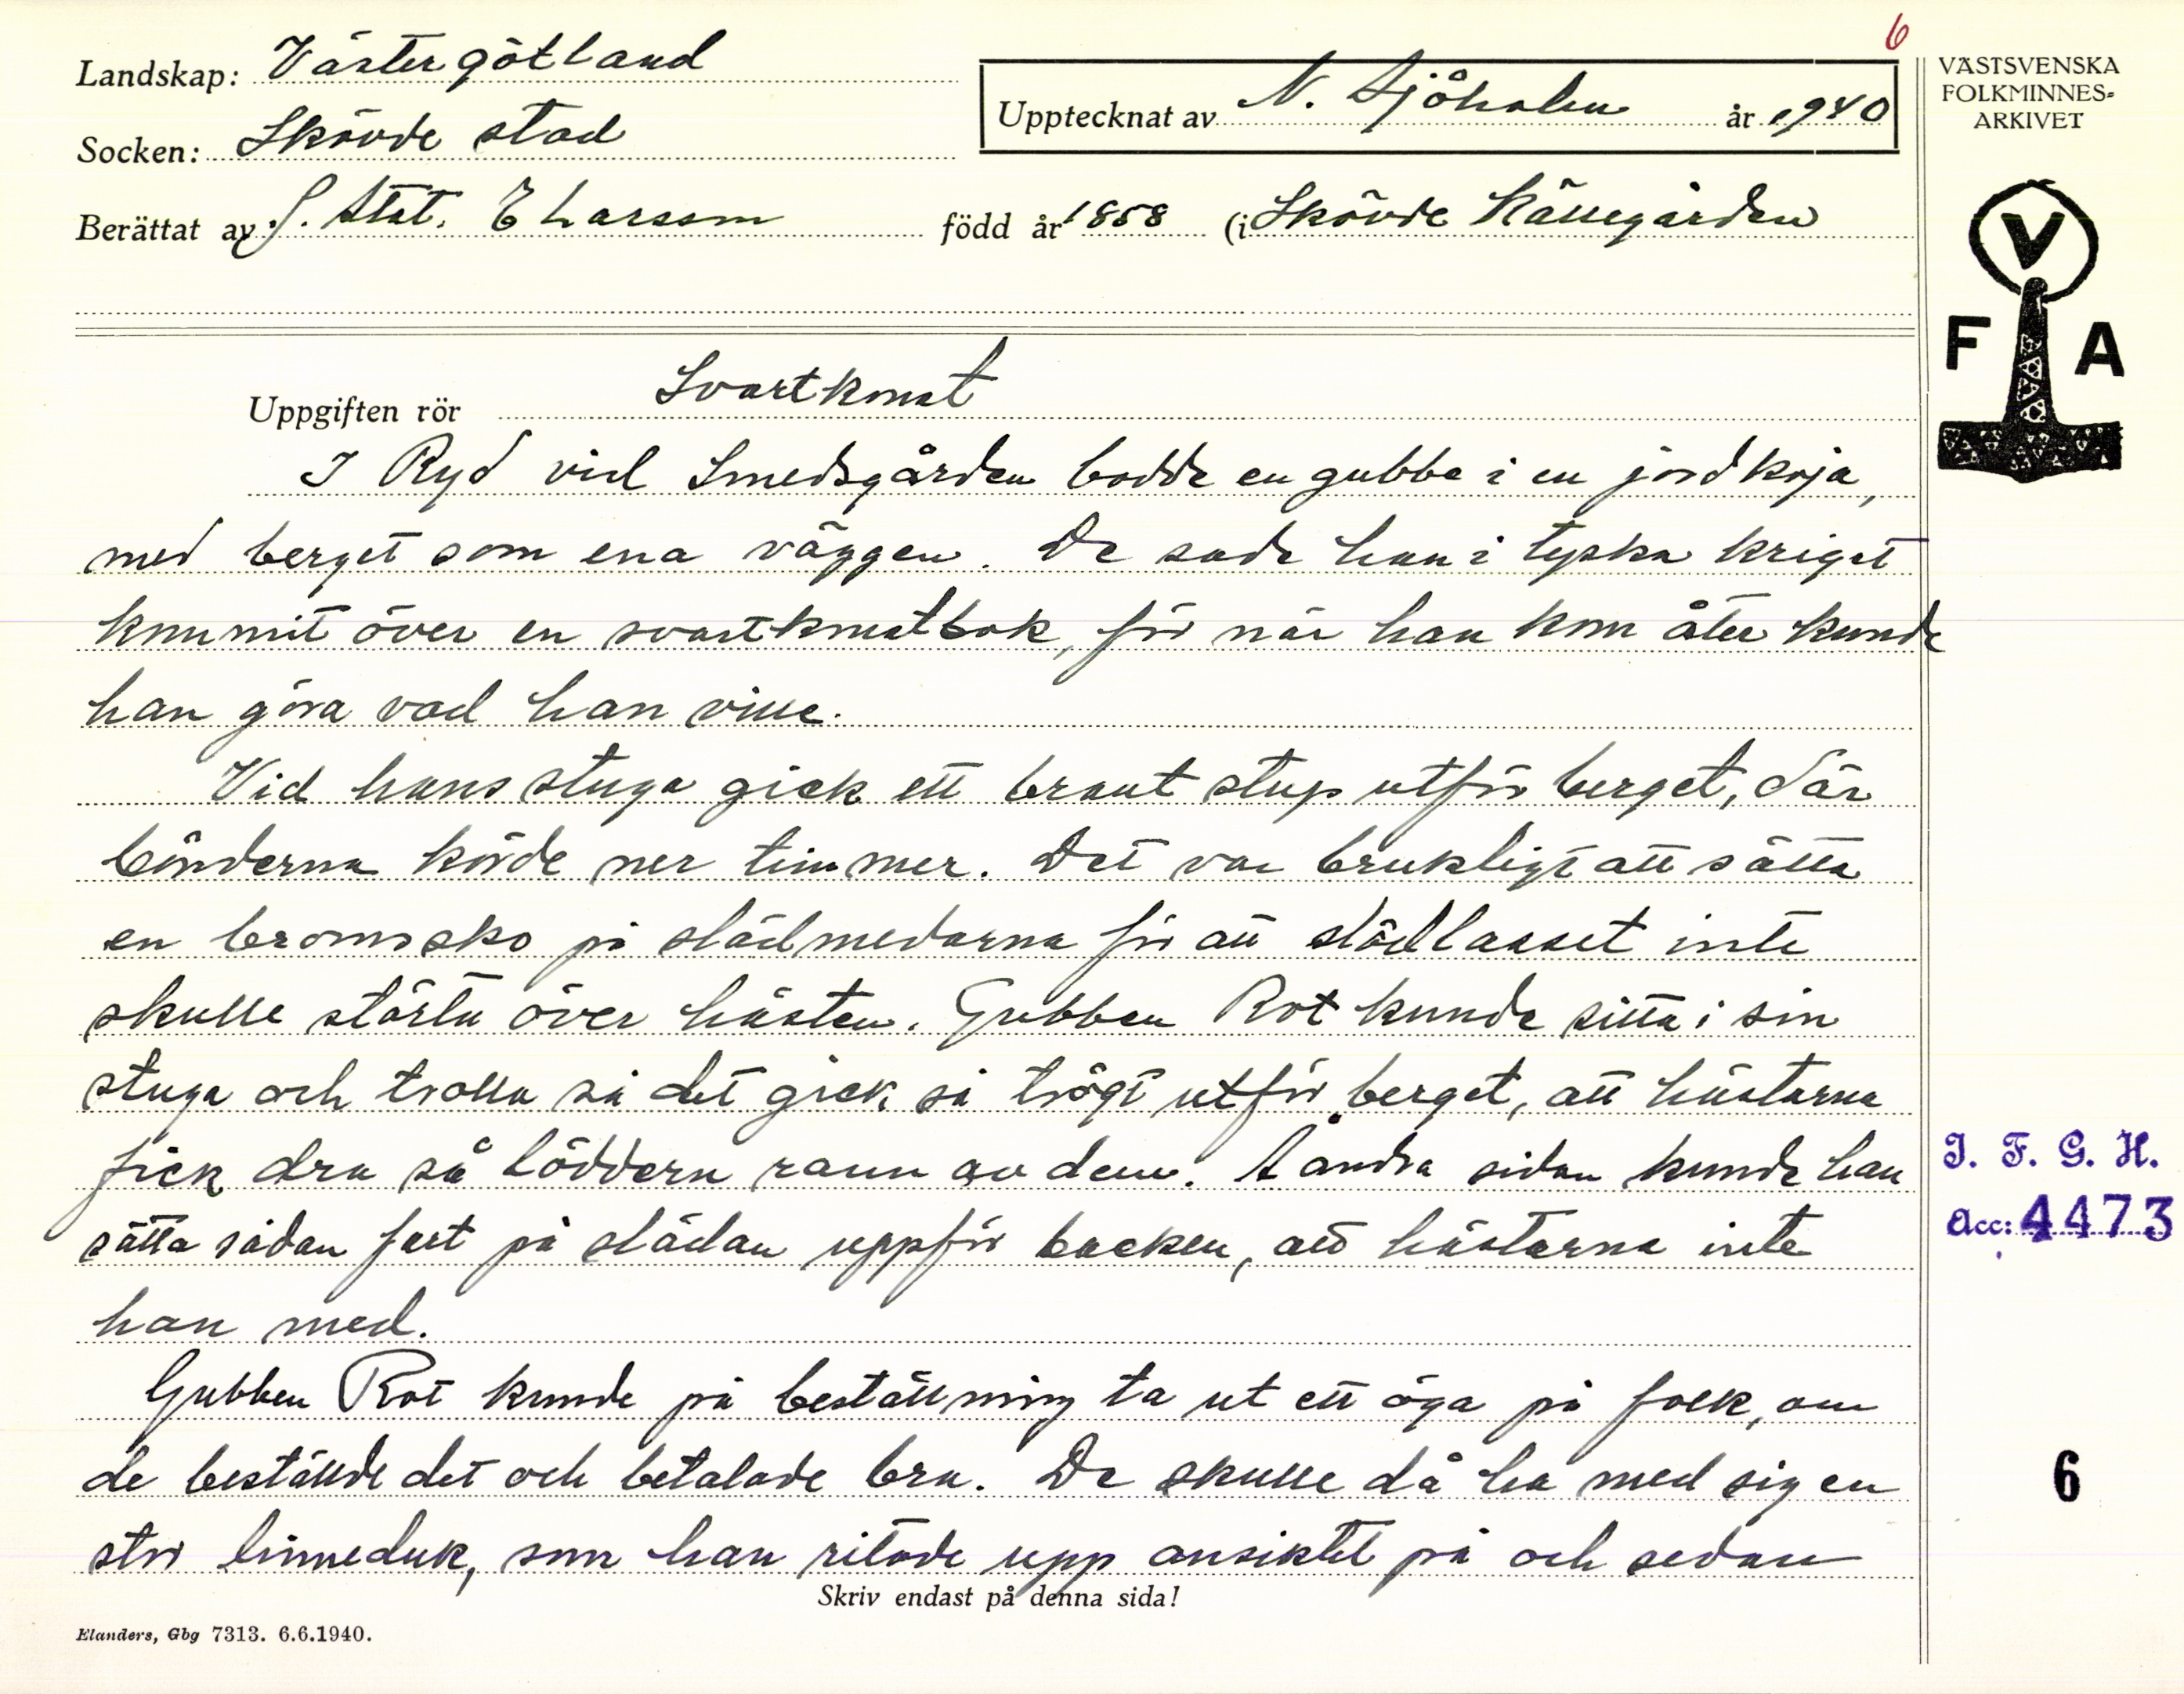 6
Landskap: Västergötland
Upptecknat av N. Sjöholm år 1940
Socken: Skövde stad
Berättat av f. Stat. E Larsson född år 1858 (i Skövde Källegården
VÄSTSVENSKA
FOLKMINNES-
ARKIVET
V
F A
Uppgiften rör Svartkonst
I Ryd vid Smedsgården bodde en gubbe i en jordkoja,
med berget som ena väggen. De sade han i tyska kriget
kommit över en svartkonstbok, för när han kom åter kunde
han göra vad han ville.
Vid hans stuga gick ett brant stup utför berget, där
bönderna körde ner timmer. Det var brukligt att sätta
en bromssko på slädmedarna för att slädlasset inte
skulle störta över hästen. Gubben Rot kunde sitta i sin
stuga och trolla så det gick så trögt utför berget, att hästarna
fick dra så löddern rann av dem. Å andra sidan kunde han
sätta sådan fart på slädan uppför backen, att hästarna inte
han med.
Gubben Rot kunde på beställning ta ut ett öga på folk, om
de beställde det och betalade bra. De skulle då ha med sig en
stor linneduk, som han ritade upp ansiktet på och sedan
I. F. G. H.
Acc: 4473
6
Skriv endast på denna sida!
Elanders, Gbg 7313. 6.6.1940.